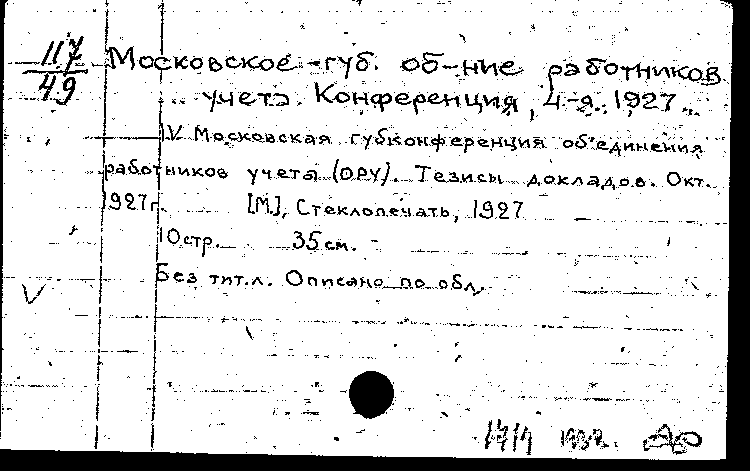 117
49
Московское губ. об-ние работников
учета. Конференция, 4-я. 1927.
IV Московская губконференция объединения
работников учета (ОРУ). Тезисы докладов. Окт.
1927г. [М.], Стеклопечать, 1927
10стр. 35см.
Без тит.л. Описано по обл.